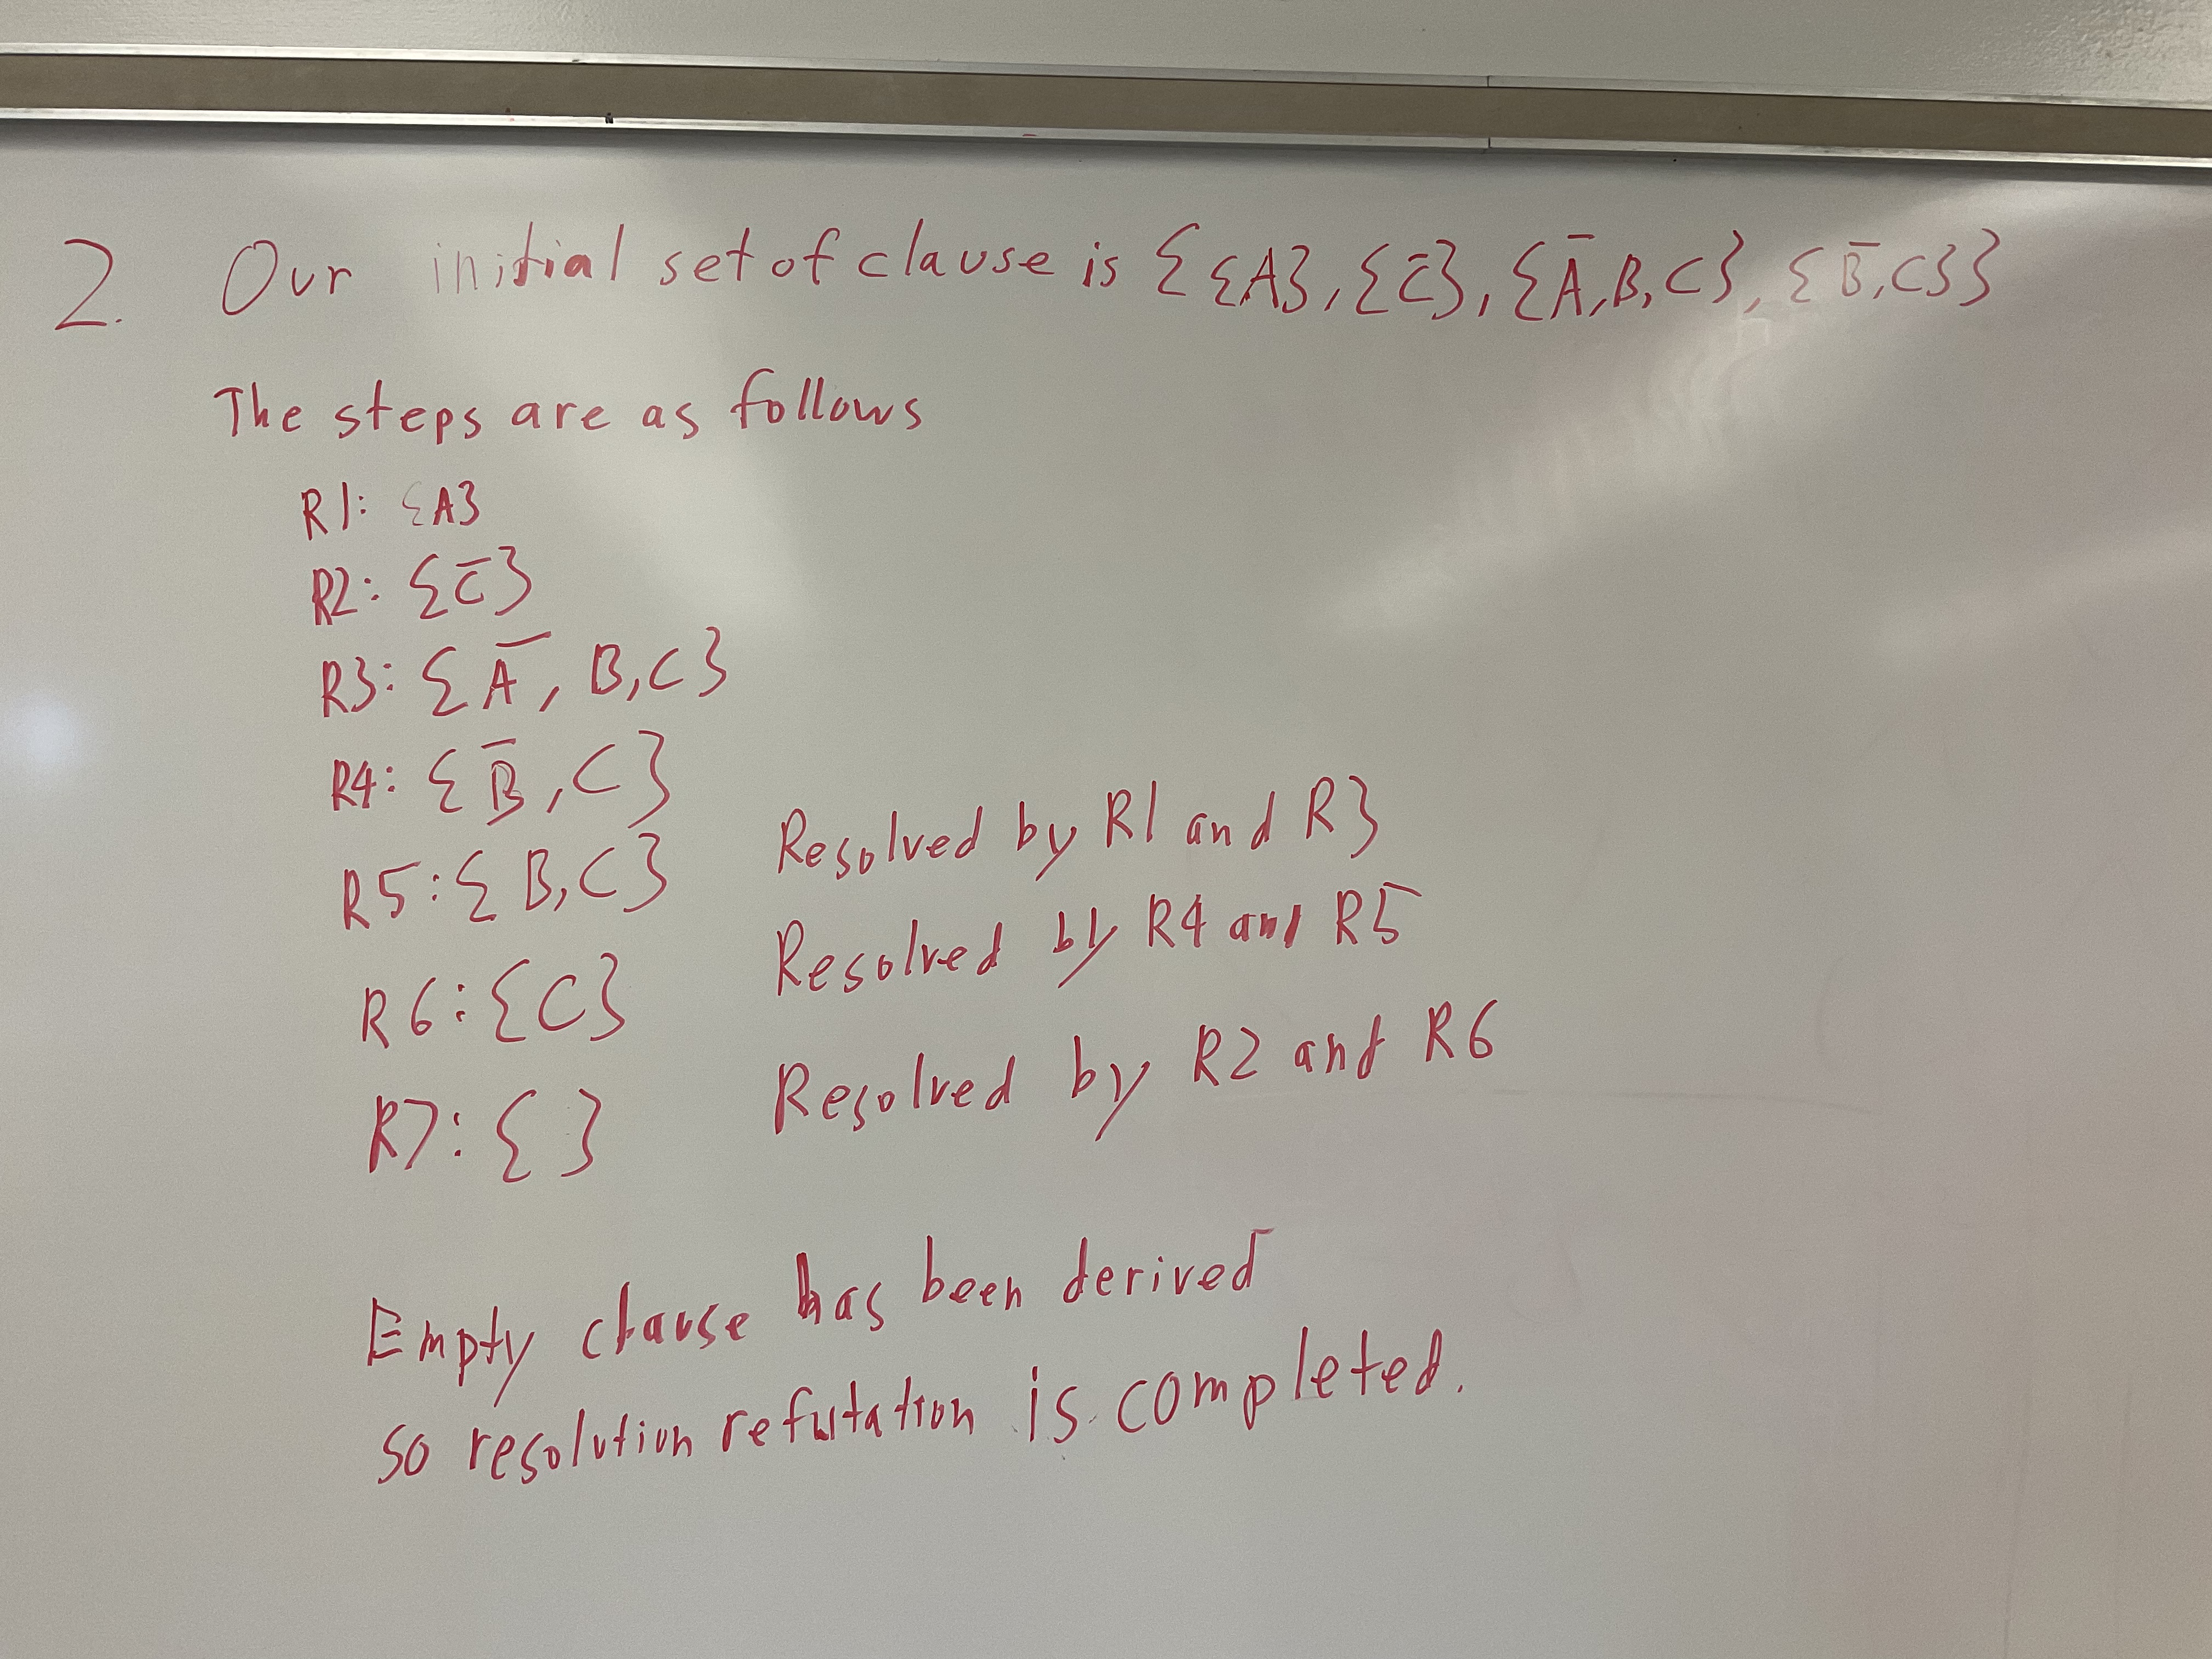 2. Our initial set of clause is {{A}, {C̅}, {A̅, B, C}, {B̅, C}}
The steps are as follows
R1: {A}
R2: {C̅}
R3: {A̅, B, C}
R4: {B̅, C}
R5: {B, C} Resolved by R1 and R3
R6: {C} Resolved by R4 and R5
R7: { } Resolved by R2 and R6
Empty clause has been derived
so resolution refutation is completed.